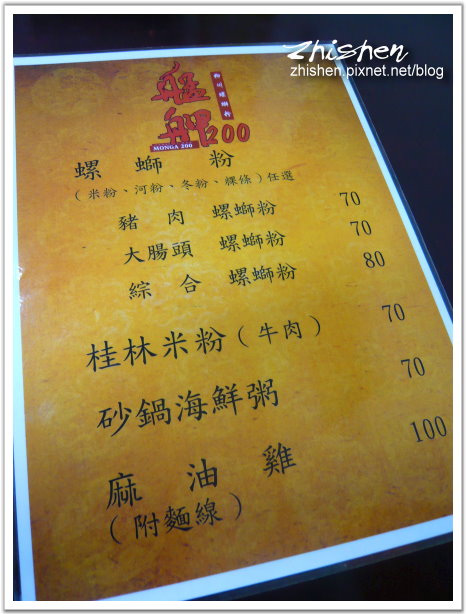 Zhishen
zhishen.pixnet.net/blog
艋舺200
柳州螺螄粉
MONGA 200
螺螄粉
(米粉、河粉、冬粉、粿條)任選
豬肉 螺螄粉 70
大腸頭 螺螄粉 70
綜合 螺螄粉 80
桂林米粉(牛肉) 70
砂鍋海鮮粥 70
麻油雞 100
(附麵線)